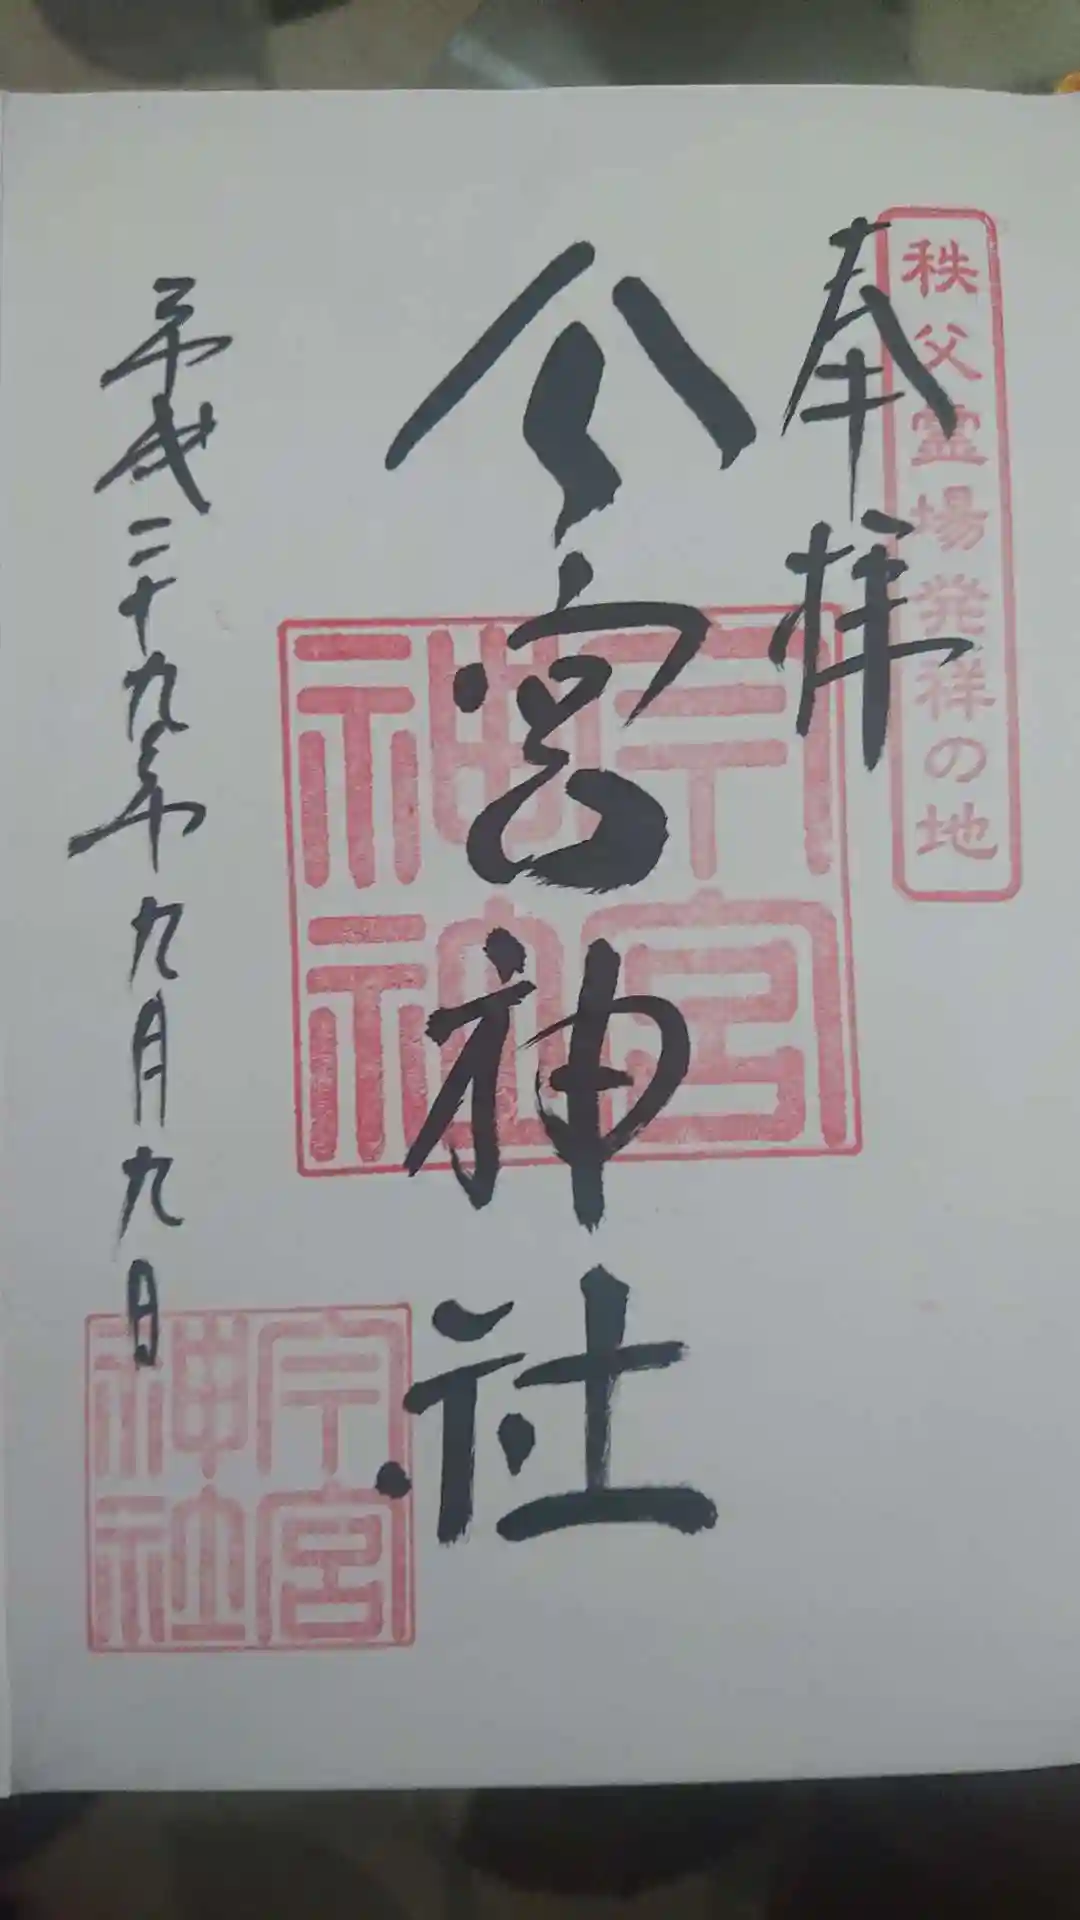 秩父霊場発祥の地
奉拝
今宮神社
今宮神社
平成二十九年九月九日
今宮神社